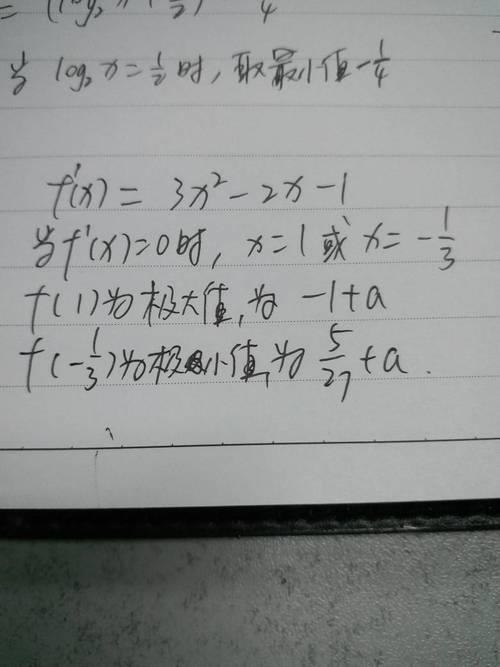 = (log₂x - 1/2)² - 1/4
当 log₂x = 1/2 时, 取最小值 -1/4
f'(x) = 3x² - 2x - 1
当 f'(x) = 0 时, x = 1 或 x = -1/3
f(1) 为极大值, 为 -1+a
f(-1/3) 为极小值, 为 5/27 + a.